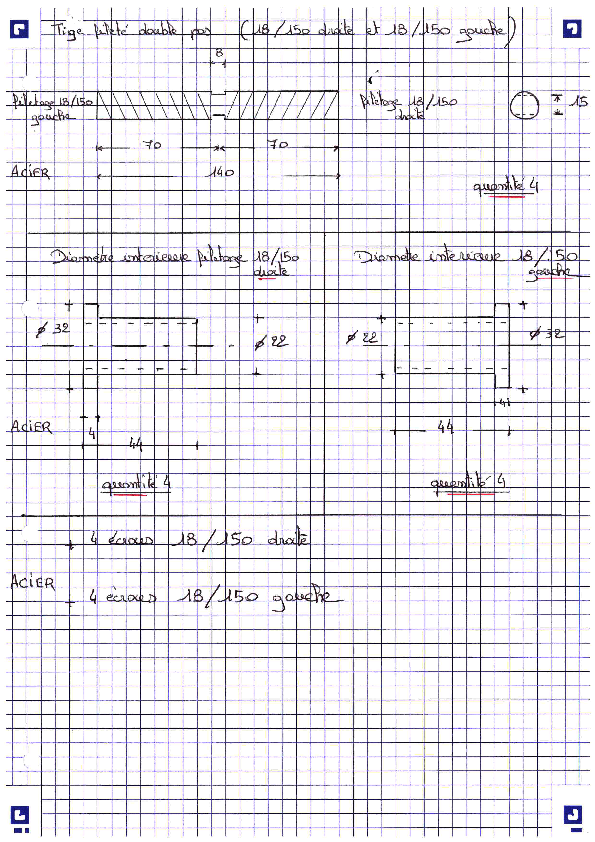 Tige filetée double pas (18/150 droite et 18/150 gauche)
8
filetage 18/150
gauche
filetage 18/150
droite
15
70
70
140
ACiER
quantité 4
Diametre interieure filetage 18/150
droite
Diametre interieure 18/150
gauche
ø 32
ø 22
ø 22
ø 32
4
44
4
44
ACiER
quantité 4
quantité 4
+ 4 écrous 18/150 droite
ACiER
+ 4 écrous 18/150 gauche